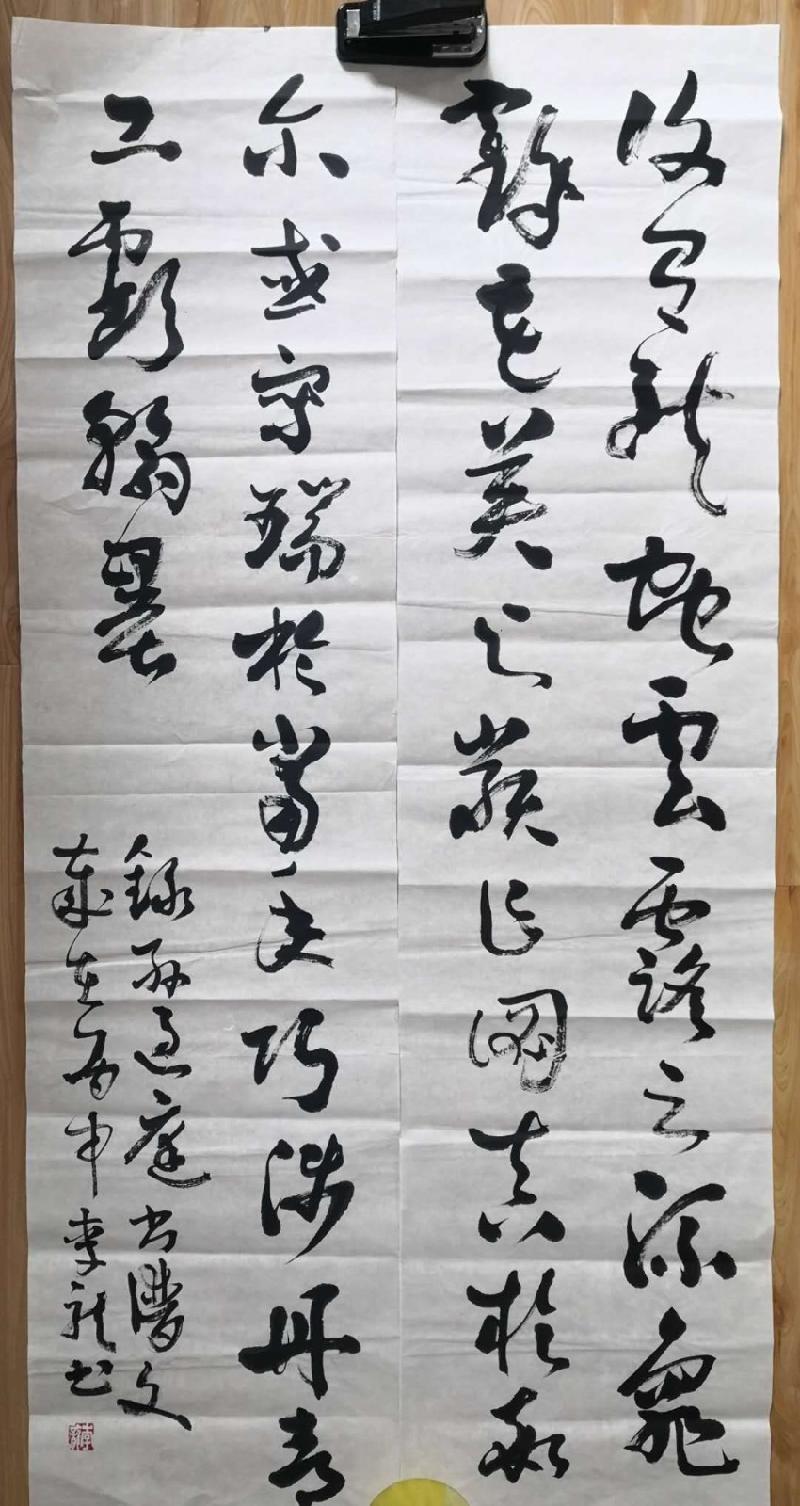 復有龍蛇雲露之流龜
鶴花英之類乍圖真於率
尔或寫瑞於當年巧涉丹青
工虧翰墨
錄孫過庭書譜文
歲在丙申李龍書